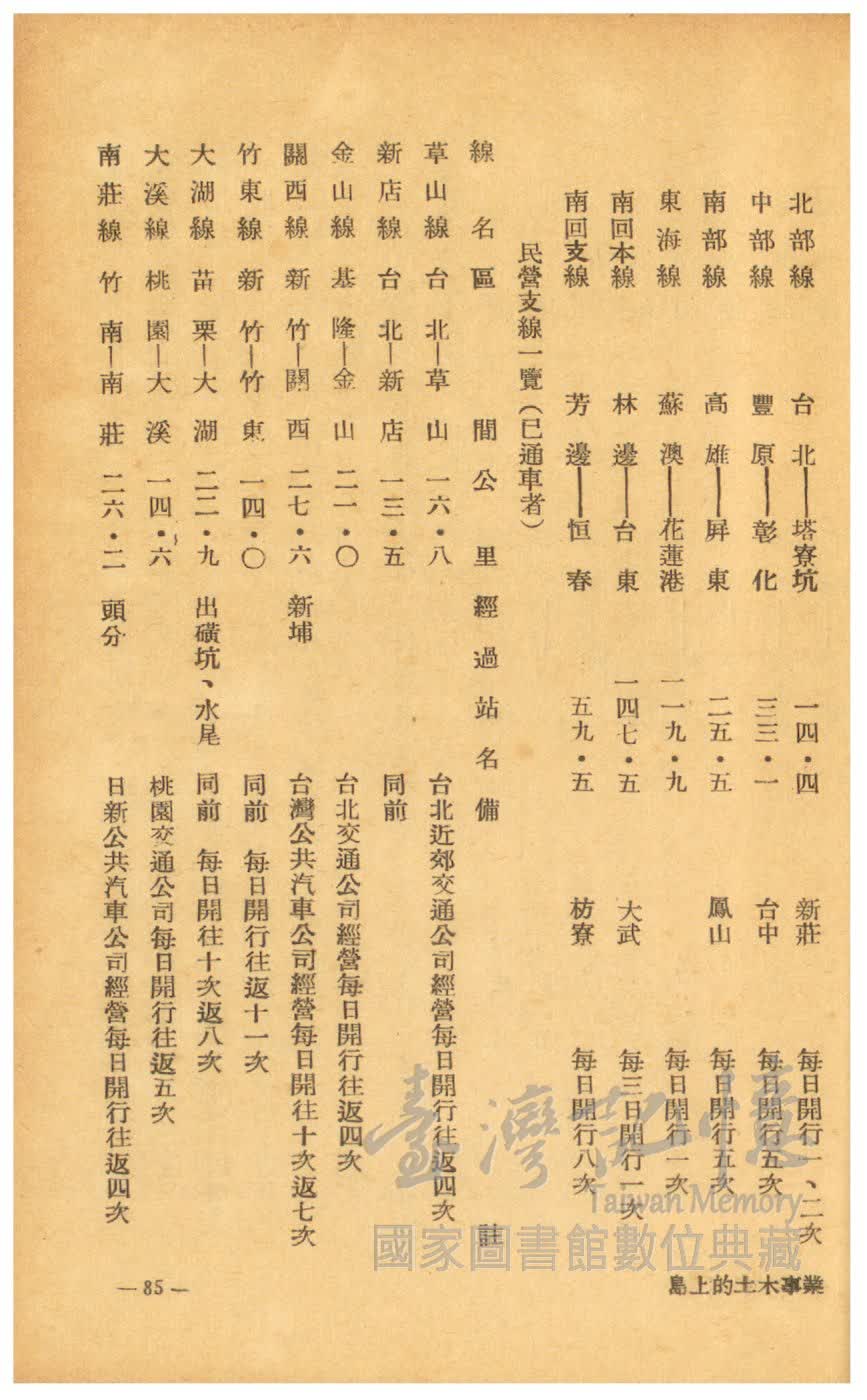 北部線　台北——塔寮坑　一四・四　新莊　每日開行一、二次
中部線　豐原——彰化　三三・一　台中　每日開行五次
南部線　高雄——屛東　二五・五　鳳山　每日開行五次
東海線　蘇澳——花蓮港　一一九・九　每日開行一次
南回本線　林邊——台東　一四七・五　大武　每三日開行一次
南回支線　芳邊——恒春　五九・五　枋寮　每日開行八次
民營支線一覽（已通車者）
線名　區間　公里　經過站名　備註
草山線　台北—草山　一六・八　台北近郊交通公司經營每日開行往返四次
新店線　台北—新店　一三・五　同前
金山線　基隆—金山　二一・〇　台北交通公司經營每日開行往返四次
關西線　新竹—關西　二七・六　新埔　台灣公共汽車公司經營每日開往十次返七次
竹東線　新竹—竹東　一四・〇　同前　每日開行往返十一次
大湖線　苗栗—大湖　二二・九　出磺坑、水尾　同前　每日開往十次返八次
大溪線　桃園—大溪　一四・六　桃園交通公司每日開行往返五次
南莊線　竹南—南莊　二六・二　頭分　日新公共汽車公司經營每日開行往返四次
島上的土木事業
— 85 —
臺灣記憶
Taiwan Memory
國家圖書館數位典藏